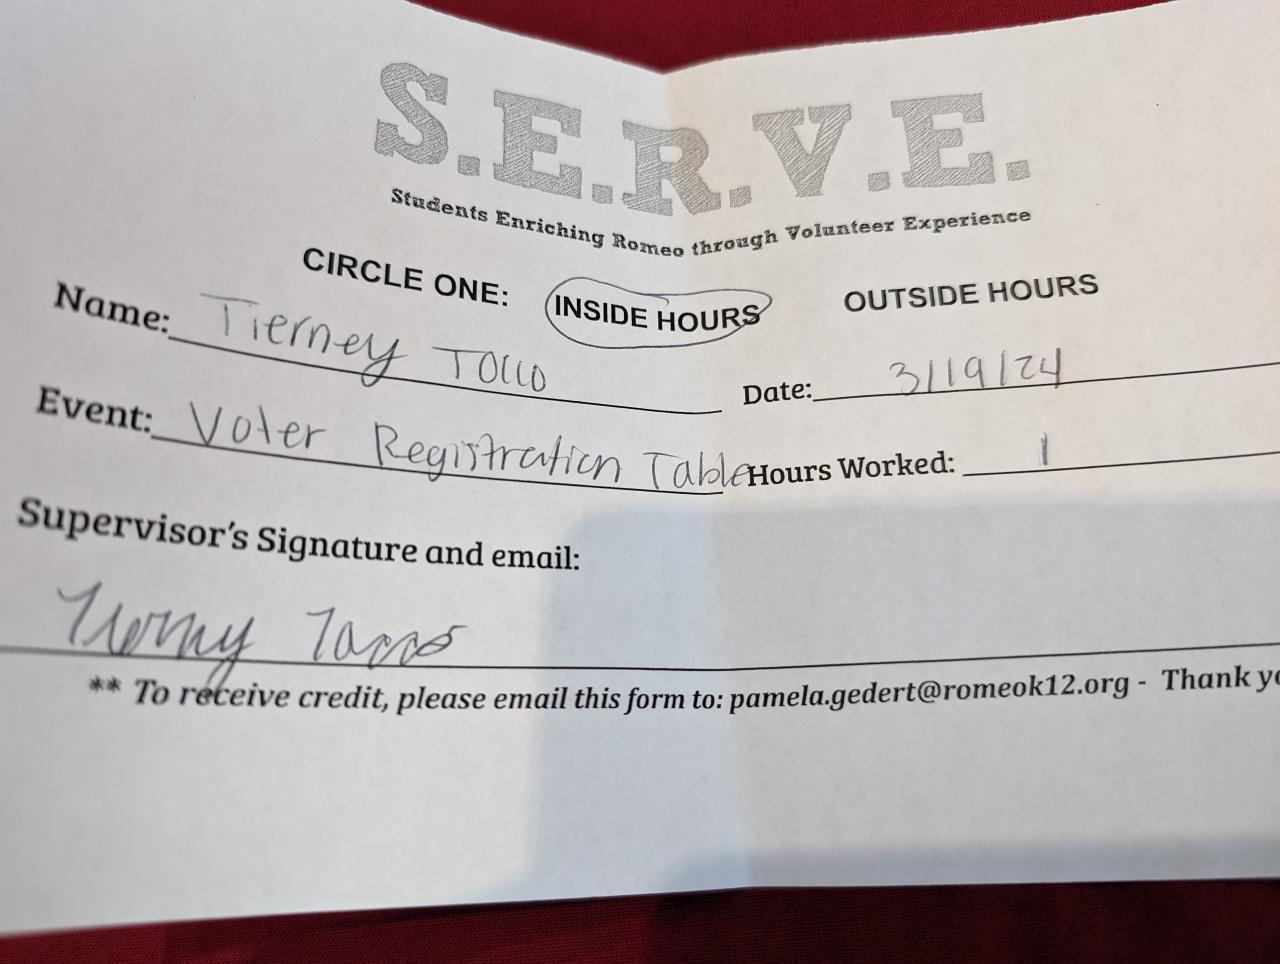 S.E.R.V.E.
Students Enriching Romeo through Volunteer Experience
CIRCLE ONE: INSIDE HOURS OUTSIDE HOURS
Name: Tierney Tocco Date: 3/19/24
Event: Voter Registration Table Hours Worked: 1
Supervisor's Signature and email:
** To receive credit, please email this form to: pamela.gedert@romeok12.org - Thank